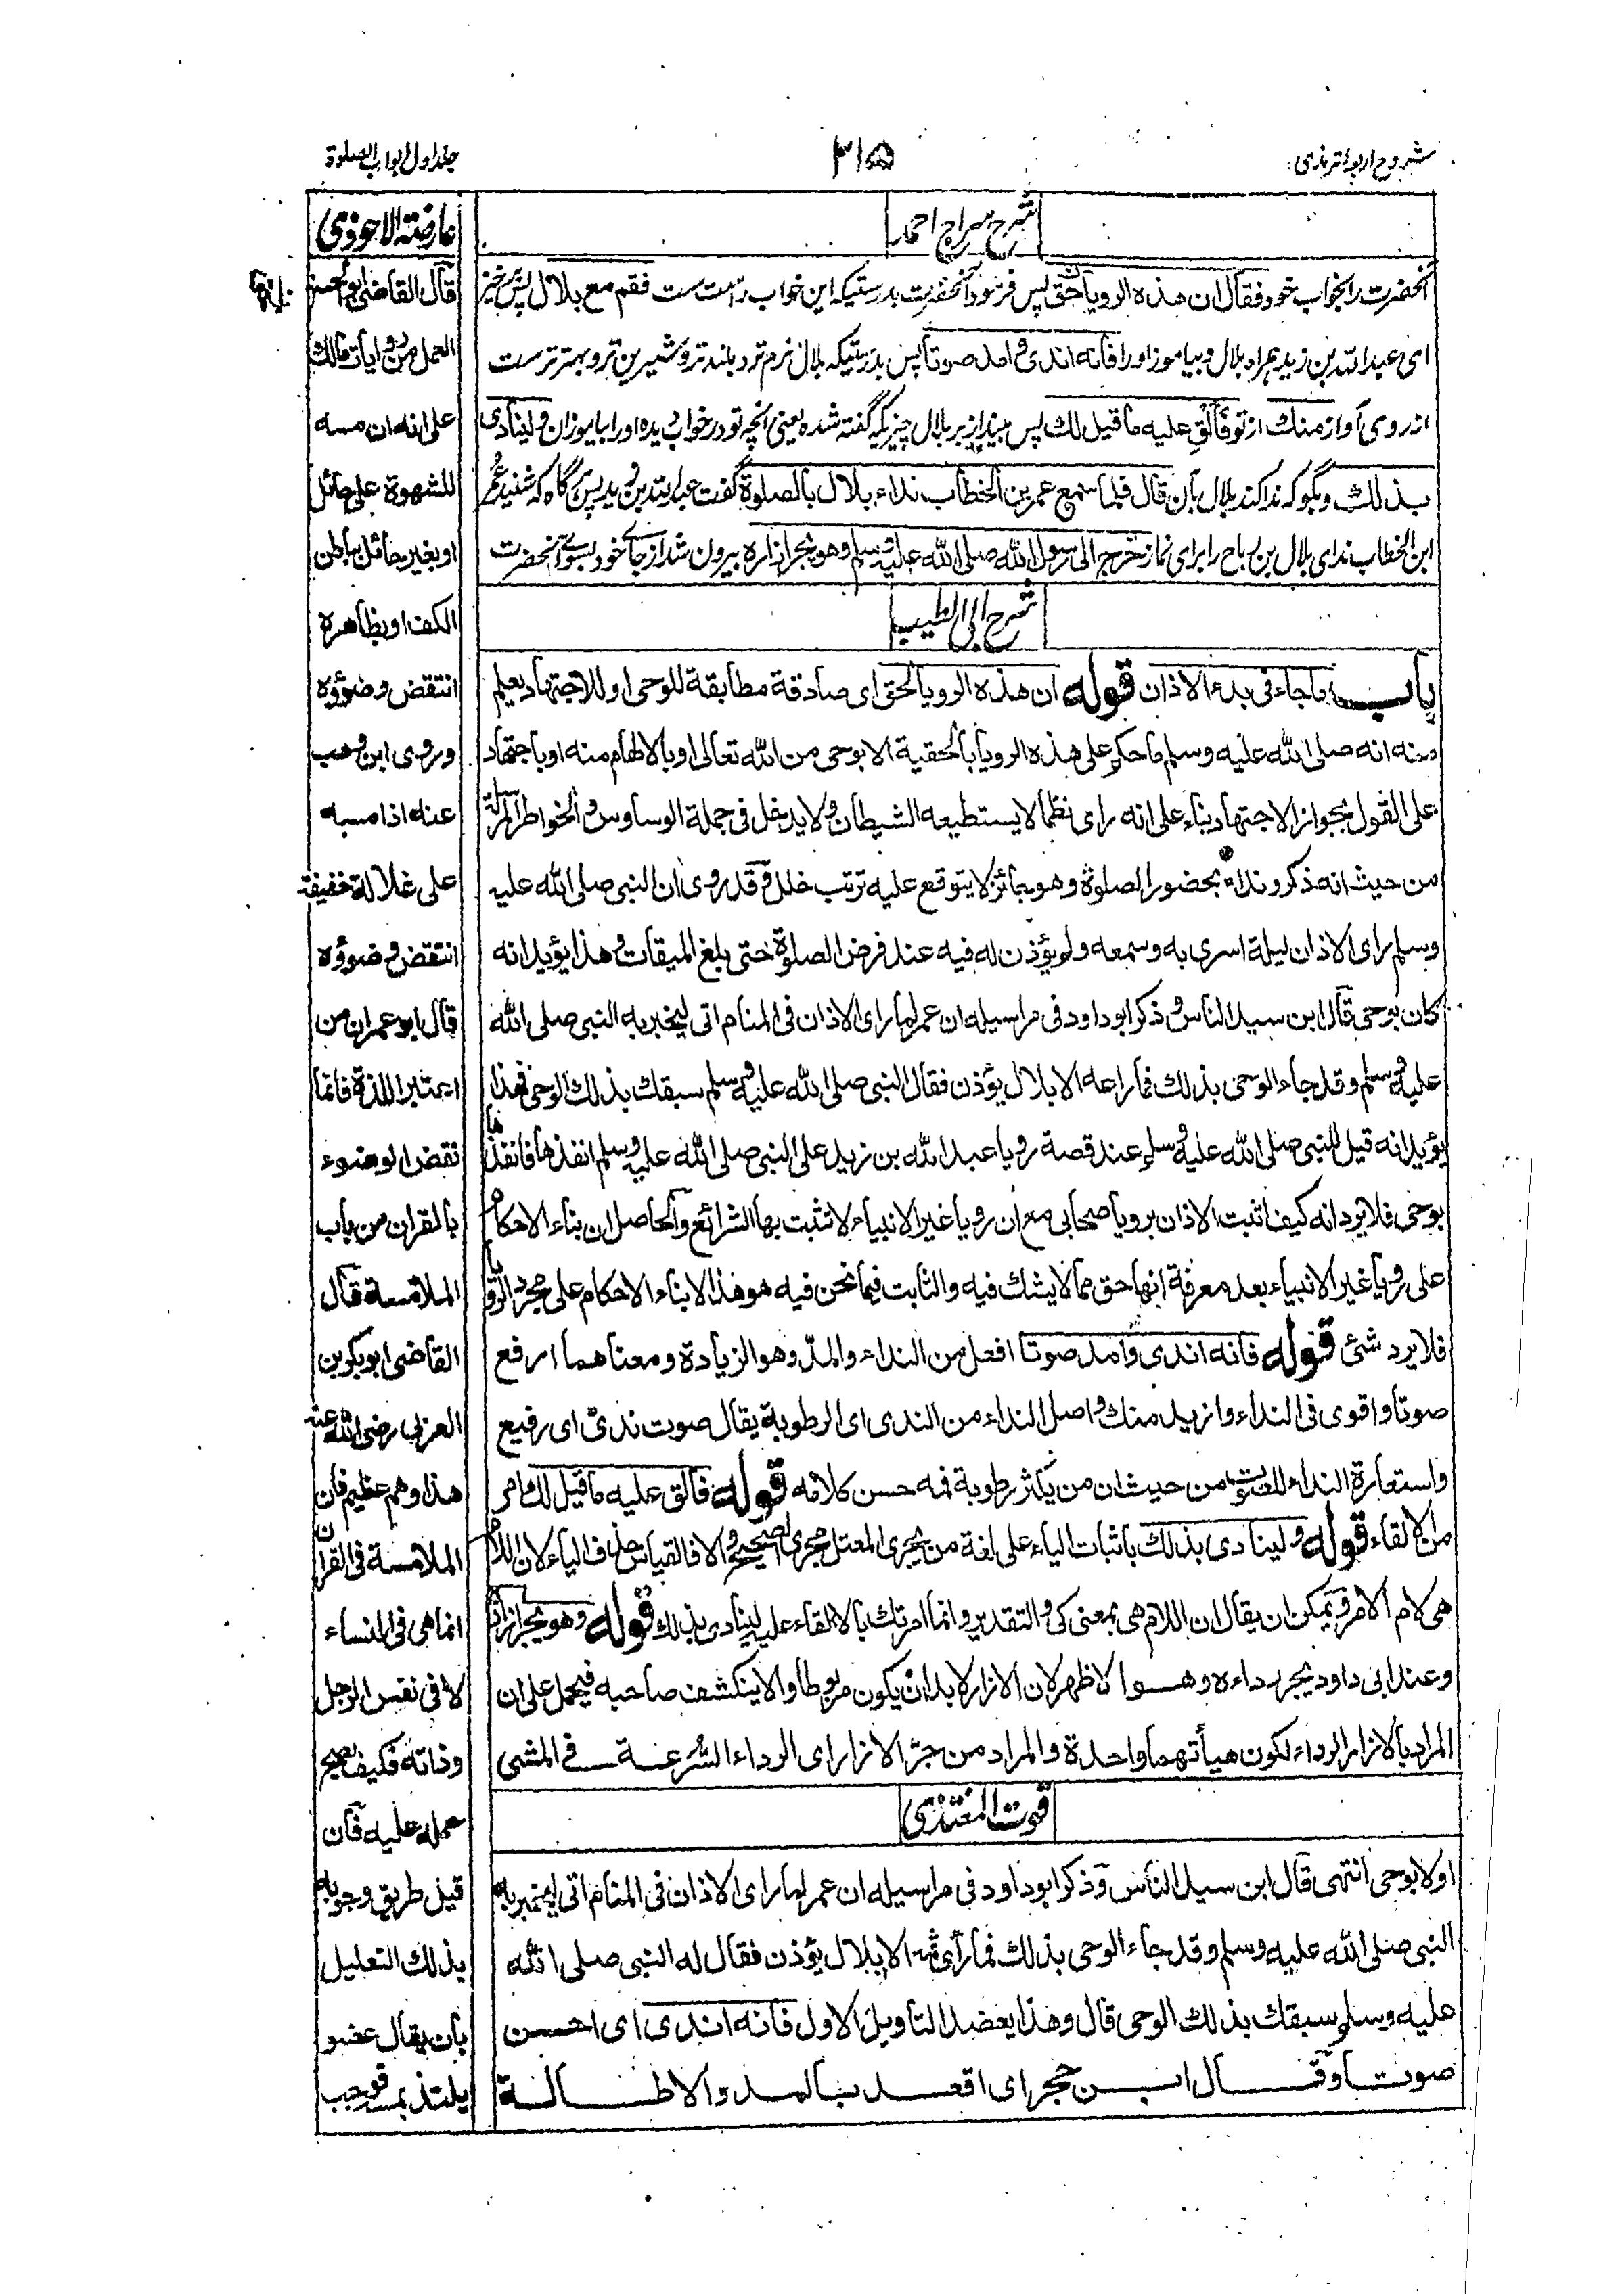 شروح اربعہ ترمذی
۳۱۵
جلد اول ابواب الصلوة
شرح سراج احمد
آنحضرت را بخواب خود فقال ان هذه الرويا حق پس فرمود آنحضرت بدرستیکه این خواب راست ست فقم مع بلال پس برخیز
ای عبدالله بن زید همراه بلال و بیاموز اورا فانه اندى و امد صوتا پس بدرستیکه بلال نرم تر و بلند تر و شیرین تر و بهتر ترست
از روی آواز منك از تو فألق عليه ما قيل لك پس بینداز بر بلال چیزیکه گفته شده یعنی آنچه تو در خواب دیده اورا بیاموزان و لينادى
بذلك و بگو که ندا کند بلال بآن قال فلما سمع عمر بن الخطاب نداء بلال بالصلوة گفت عبدالله بن زید پس گاه که شنید عمر
ابن الخطاب ندای بلال بن رباح را برای نماز خرج الى رسول الله صلى الله عليه وسلم وهو يجر ازاره بیرون شد از جای خود بسوی آنحضرت
شرح ابی الطیب
باب ما جاء فى بدء الاذان قوله ان هذه الرويا لحق اى صادقة مطابقة للوحى او للاجتهاد يعلم
منه انه صلى الله عليه وسلم ما حكم على هذه الرويا بالحقية الا بوحى من الله تعالى او بالالهام منه او باجتهاد
على القول بجواز الاجتهاد بناء على انه راى نظما لا يستطيعه الشيطان ولا يدخل فى جملة الوساوس والخواطر المرسلة
من حيث انه ذكر ونداء بحضور الصلوة وهو جائز لا يتوقع عليه ترتب خلل وقد روى ان النبى صلى الله عليه
وسلم راى الاذان ليلة اسرى به وسمعه ولم يؤذن له فيه عند فرض الصلوة حتى بلغ الميقات وهذا يؤيد انه
كان بوحى قال ابن سيد الناس وذكر ابو داود فى مراسيله ان عمر لما راى الاذان فى المنام اتى ليخبر به النبى صلى الله
عليه وسلم وقد جاء الوحى بذلك فما راعه الا بلال يؤذن فقال النبى صلى الله عليه وسلم سبقك بذلك الوحى فهذا
يؤيد انه قيل للنبى صلى الله عليه وسلم عند قصة رويا عبد الله بن زيد على النبى صلى الله عليه وسلم انفذها فانفذها
بوحى فلا يرد انه كيف اثبت الاذان برويا صحابى مع ان رويا غير الانبياء لا تثبت بها الشرائع والحاصل ان بناء الاحكام
على رويا غير الانبياء بعد معرفة انها حق مما لا يشك فيه والثابت فيما نحن فيه هو هذا لا بناء الاحكام على مجرد الرويا
فلا يرد شئ قوله فانه اندى وامد صوتا افعل من النداء والمد وهو الزيادة ومعناهما ارفع
صوتا واقوى فى النداء وازيد منك واصل النداء من الندى اى الرطوبة يقال صوت ندى اى رفيع
واستعارة النداء للصوت من حيث ان من يكثر رطوبة فمه حسن كلامه قوله فالق عليه ما قيل لك امر
من الالقاء قوله ولينادى بذلك باثبات الياء على لغة من يجرى المعتل مجرى الصحيح والا فالقياس حذف الياء لان اللام
هى لام الامر ويمكن ان يقال ان اللام هى بمعنى كى والتقدير وانما امرتك بالالقاء عليه لينادى بذلك قوله وهو يجر ازاره
وعند ابى داود يجر رداءه وهو الاظهر لان الازار لا بد ان يكون مربوطا والا ينكشف صاحبه فيحمل على ان
المراد بالازار الرداء لكون هيأتهما واحدة والمراد من جر الازار اى الرداء السرعة فى المشى
قوت المغتذی
اولا بوحى انتهى قال ابن سيد الناس وذكر ابو داود فى مراسيله ان عمر لما راى الاذان فى المنام اتى ليخبر به
النبى صلى الله عليه وسلم وقد جاء الوحى بذلك فما رأى ثمه الا بلال يؤذن فقال له النبى صلى الله
عليه وسلم سبقك بذلك الوحى قال وهذا يعضد التاويل الاول فانه اندى اى احسن
صوتا وقال ابن حجر اى اقعد بالمد والاطالة
عارضة الاحوذی
قال القاضى ابو الحسن
العمل من روايات مالك
على انه ان مسه
للشهوة على حائل
او بغير حائل بباطن
الكف او بظاهره
انتقض وضوؤه
وروى ابن وهب
عنه اذا مسه
على غلالة خفيفة
انتقض وضوؤه
قال ابو عمران من
اعتبر اللذة فانما
نقض الوضوء
بالقران من باب
الملامسة قال
القاضى ابو بكر بن
العربى رضى الله عنه
هذا وهم عظيم فان
الملامسة فى القران
انما هى فى النساء
لا فى نفس الرجل
وذاته فكيف يصح
حمله عليه فان
قيل طريق وجوبه
بذلك التعليل
بان يقال عضو
يلتذ بمسه فوجب